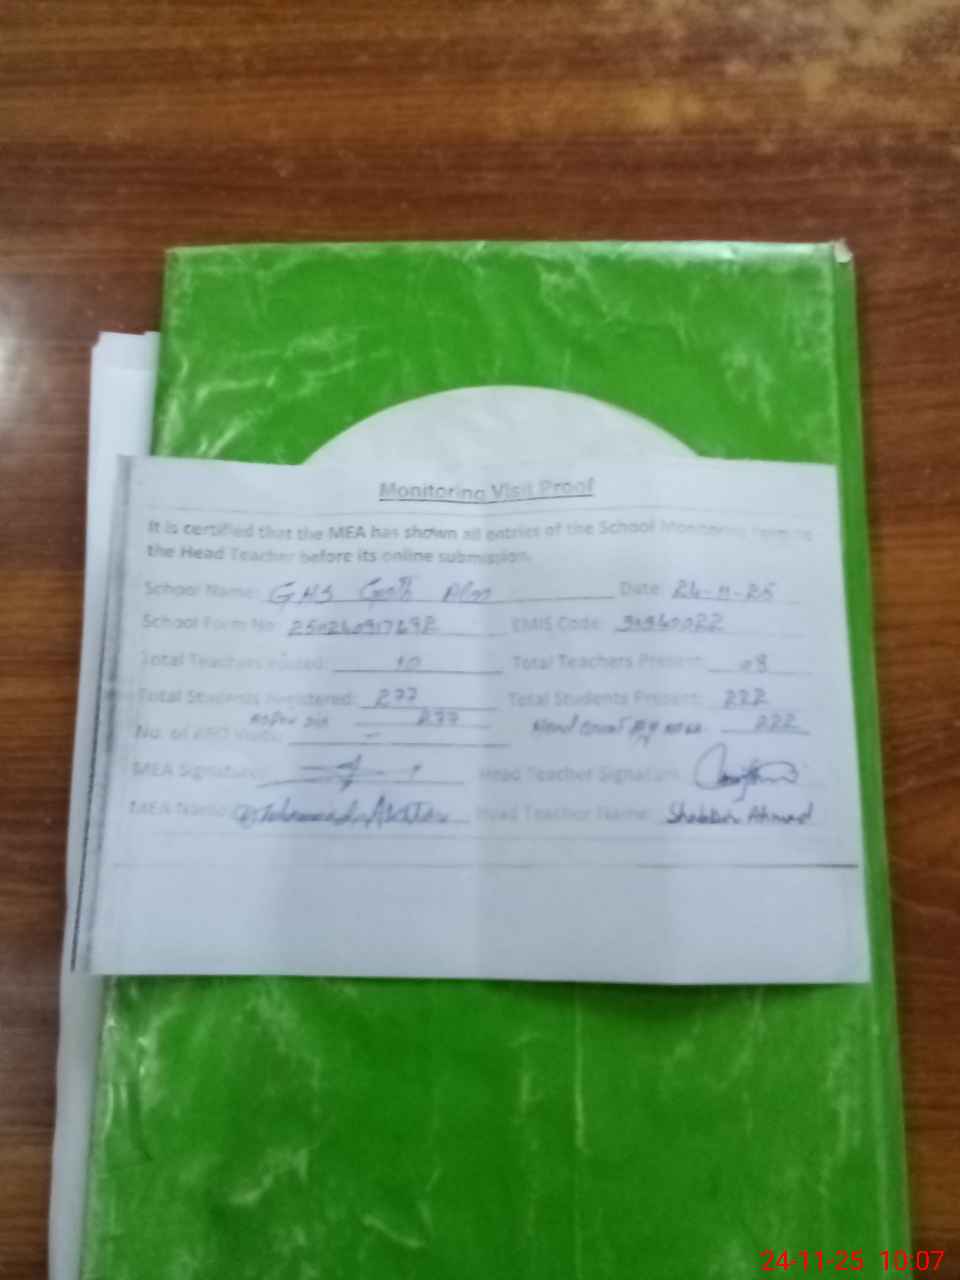 Monitoring Visit Proof
It is certified that the MEA has shown all entries of the School Monitoring
the Head Teacher before its online submission.
School Name: GHS Date: 24-11-25
School Form No: EMIS Code:
Total Teachers Posted: 10 Total Teachers Present: 08
Total Students Registered: 277 Total Students Present: 222
277 Head Count 222
No. of AEO Visits: -
MEA Signature: Head Teacher Signature:
MEA Name: Head Teacher Name: Shabbir Ahmad
24-11-25 10:07